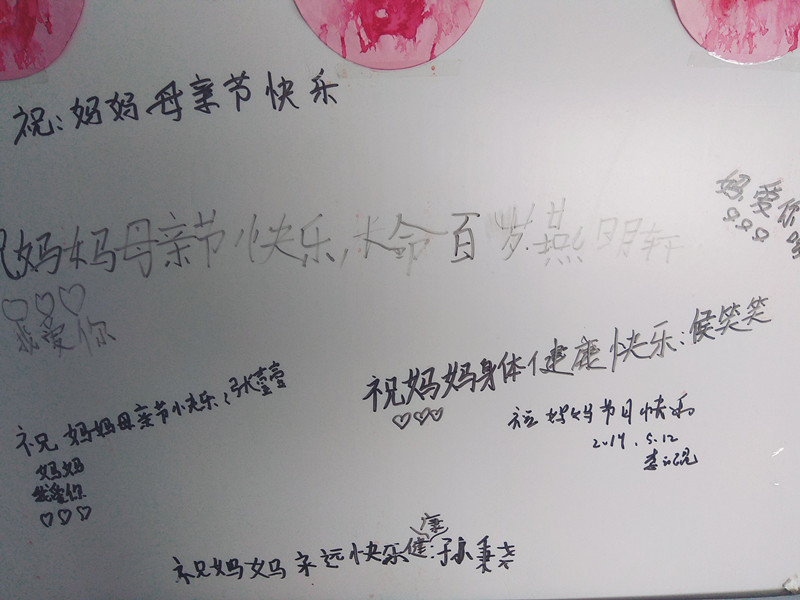 祝:妈妈母亲节快乐
妈爱你
祝妈妈母亲节快乐,长命百岁.燕明轩
我爱你
祝妈妈身体健康快乐:侯笑笑
祝妈妈母亲节快乐:张
妈妈
我爱你
祝妈妈节日快乐
5.12
祝妈妈永远快乐健康:孙秉尧